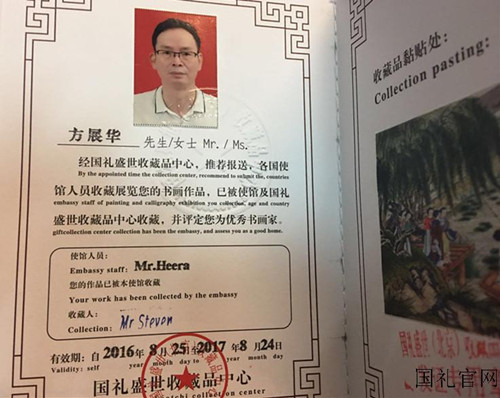 方展华 先生/女士 Mr. / Ms.
经国礼盛世收藏品中心，推荐报送，各国使
By the appointed time the collection center, recommend to submit the, countries
馆人员收藏展览您的书画作品，已被使馆及国礼
embassy staff of painting and calligraphy exhibition you collection, age and country
盛世收藏品中心收藏，并评定您为优秀书画家。
giftcollection center collection has been the embassy, and assess you as a good home.
使馆人员：
Embassy staff: Mr.Heera
您的作品已被本使馆收藏
Your work has been collected by the embassy
收藏人：
Collection: Mr Steven
有效期：自2016年8月25日至2017年8月24日
Validity: self year month day to year month day
国礼盛世收藏品中心
collection center
收藏品黏贴处：
Collection pasting:
国礼盛世（北京）
国礼官网